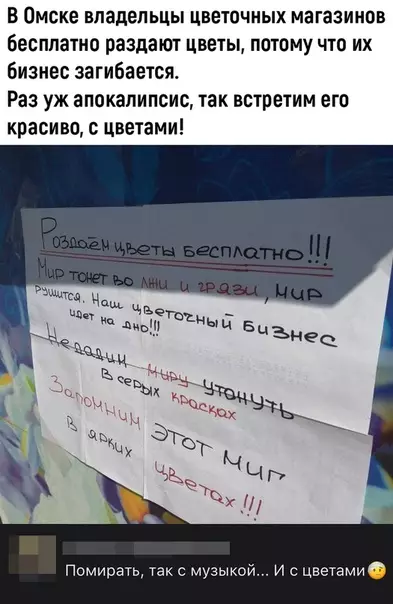 В Омске владельцы цветочных магазинов
бесплатно раздают цветы, потому что их
бизнес загибается.
Раз уж апокалипсис, так встретим его
красиво, с цветами!
Роздаём цветы бесплатно!!!
Мир тонет во лжи и грязи, мир
рушится. Наш цветочный бизнес
идет на дно!!!
Не дадим миру утонуть
в серых красках
Запомним этот миг
в ярких цветах!!!
Помирать, так с музыкой... И с цветами🤕